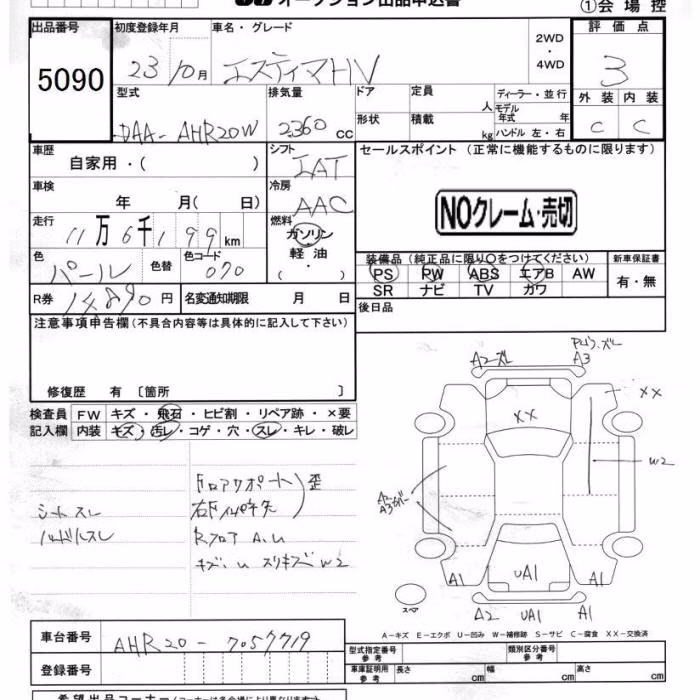 オークション出品申込書
①会場控
出品番号 初度登録年月 車名・グレード 評価点
5090 23 10月 エスティマHV 2WD・4WD 3
型式 排気量 ドア 定員 人 ディーラー・並行 外装 内装
DAA-AHR20W 2360cc 形状 積載 kg モデル年式 年式 ハンドル 左・右 C C
車歴 シフト セールスポイント (正常に機能するものに限ります)
自家用・( ) IAT
車検 冷房
年 月( 日) AAC NOクレーム・売切
走行 燃料
11万6千199km ガソリン・軽油・
色 色替 色コード 装備品(純正品に限り○をつけてください) 新車保証書
パール 070 PS PW ABS エアB AW 有・無
R券 14890円 名変通知期限 月 日 SR ナビ TV カワ
注意事項申告欄(不具合内容等は具体的に記入して下さい) 後日品
修復歴 有 〔箇所 〕
検査員 FW キズ・飛石・ヒビ割・リペア跡・×要
記入欄 内装 キズ・汚レ・コゲ・穴・スレ・キレ・破レ
シートスレ
Rフロア A.U
キズ、U スリキズ W2
A2 A3
XX
XX
W2
A1 UA1
スペア
A2 UA1 A1
A-キズ E-エクボ U-凹み W-補修跡 S-サビ C-腐食 XX-交換済
車台番号 AHR20-7057719 型式指定番号 参考 類別区分番号 参考
登録番号 車庫証明用 参考 長さ cm 幅 cm 高さ cm
希望出品コーナー(コーナーは各会場により異なります)